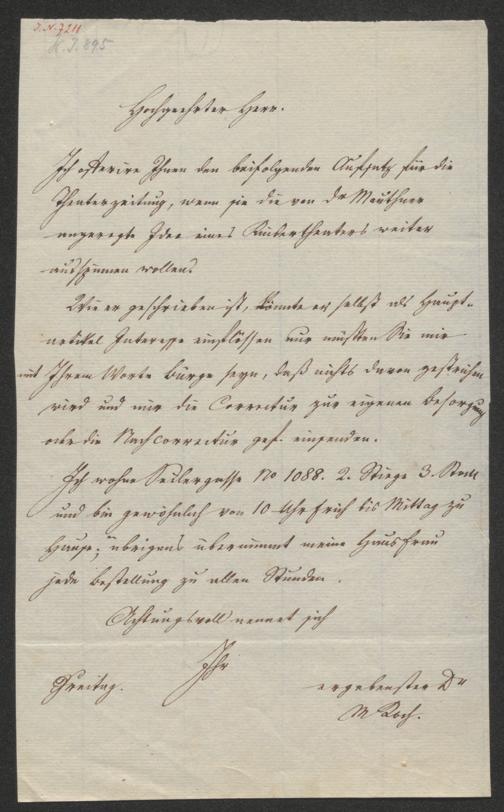 I.N.7211
H.I.895
Hochgeehrter Herr.
Ich offerire Ihnen den beifolgenden Aufsatz für die
Theaterzeitung, wenn sie die von Dr Mauthner
angeregte Idee eines Kindertheaters weiter
ausspinnen wollen.
Wie er geschrieben ist, könnte er selbst als Haupt-
artikel Interesse einflössen nur müßten Sie mir
mit Ihrem Worte Bürge seyn, daß nichts davon gestrichen
wird und mir die Correctur zur eigenen Besorgung
oder die Nachcorrectur gef. einsenden.
Ich wohne Seilergasse No 1088. 2. Stiege 3. Stock
und bin gewöhnlich von 10 Uhr Früh bis Mittag zu
Hause; übrigens übernimmt meine Hausfrau
jede Bestellung zu allen Stunden.
Achtungsvoll nennet sich
Ihr
Freitag. ergebenster Dr
M Koch.